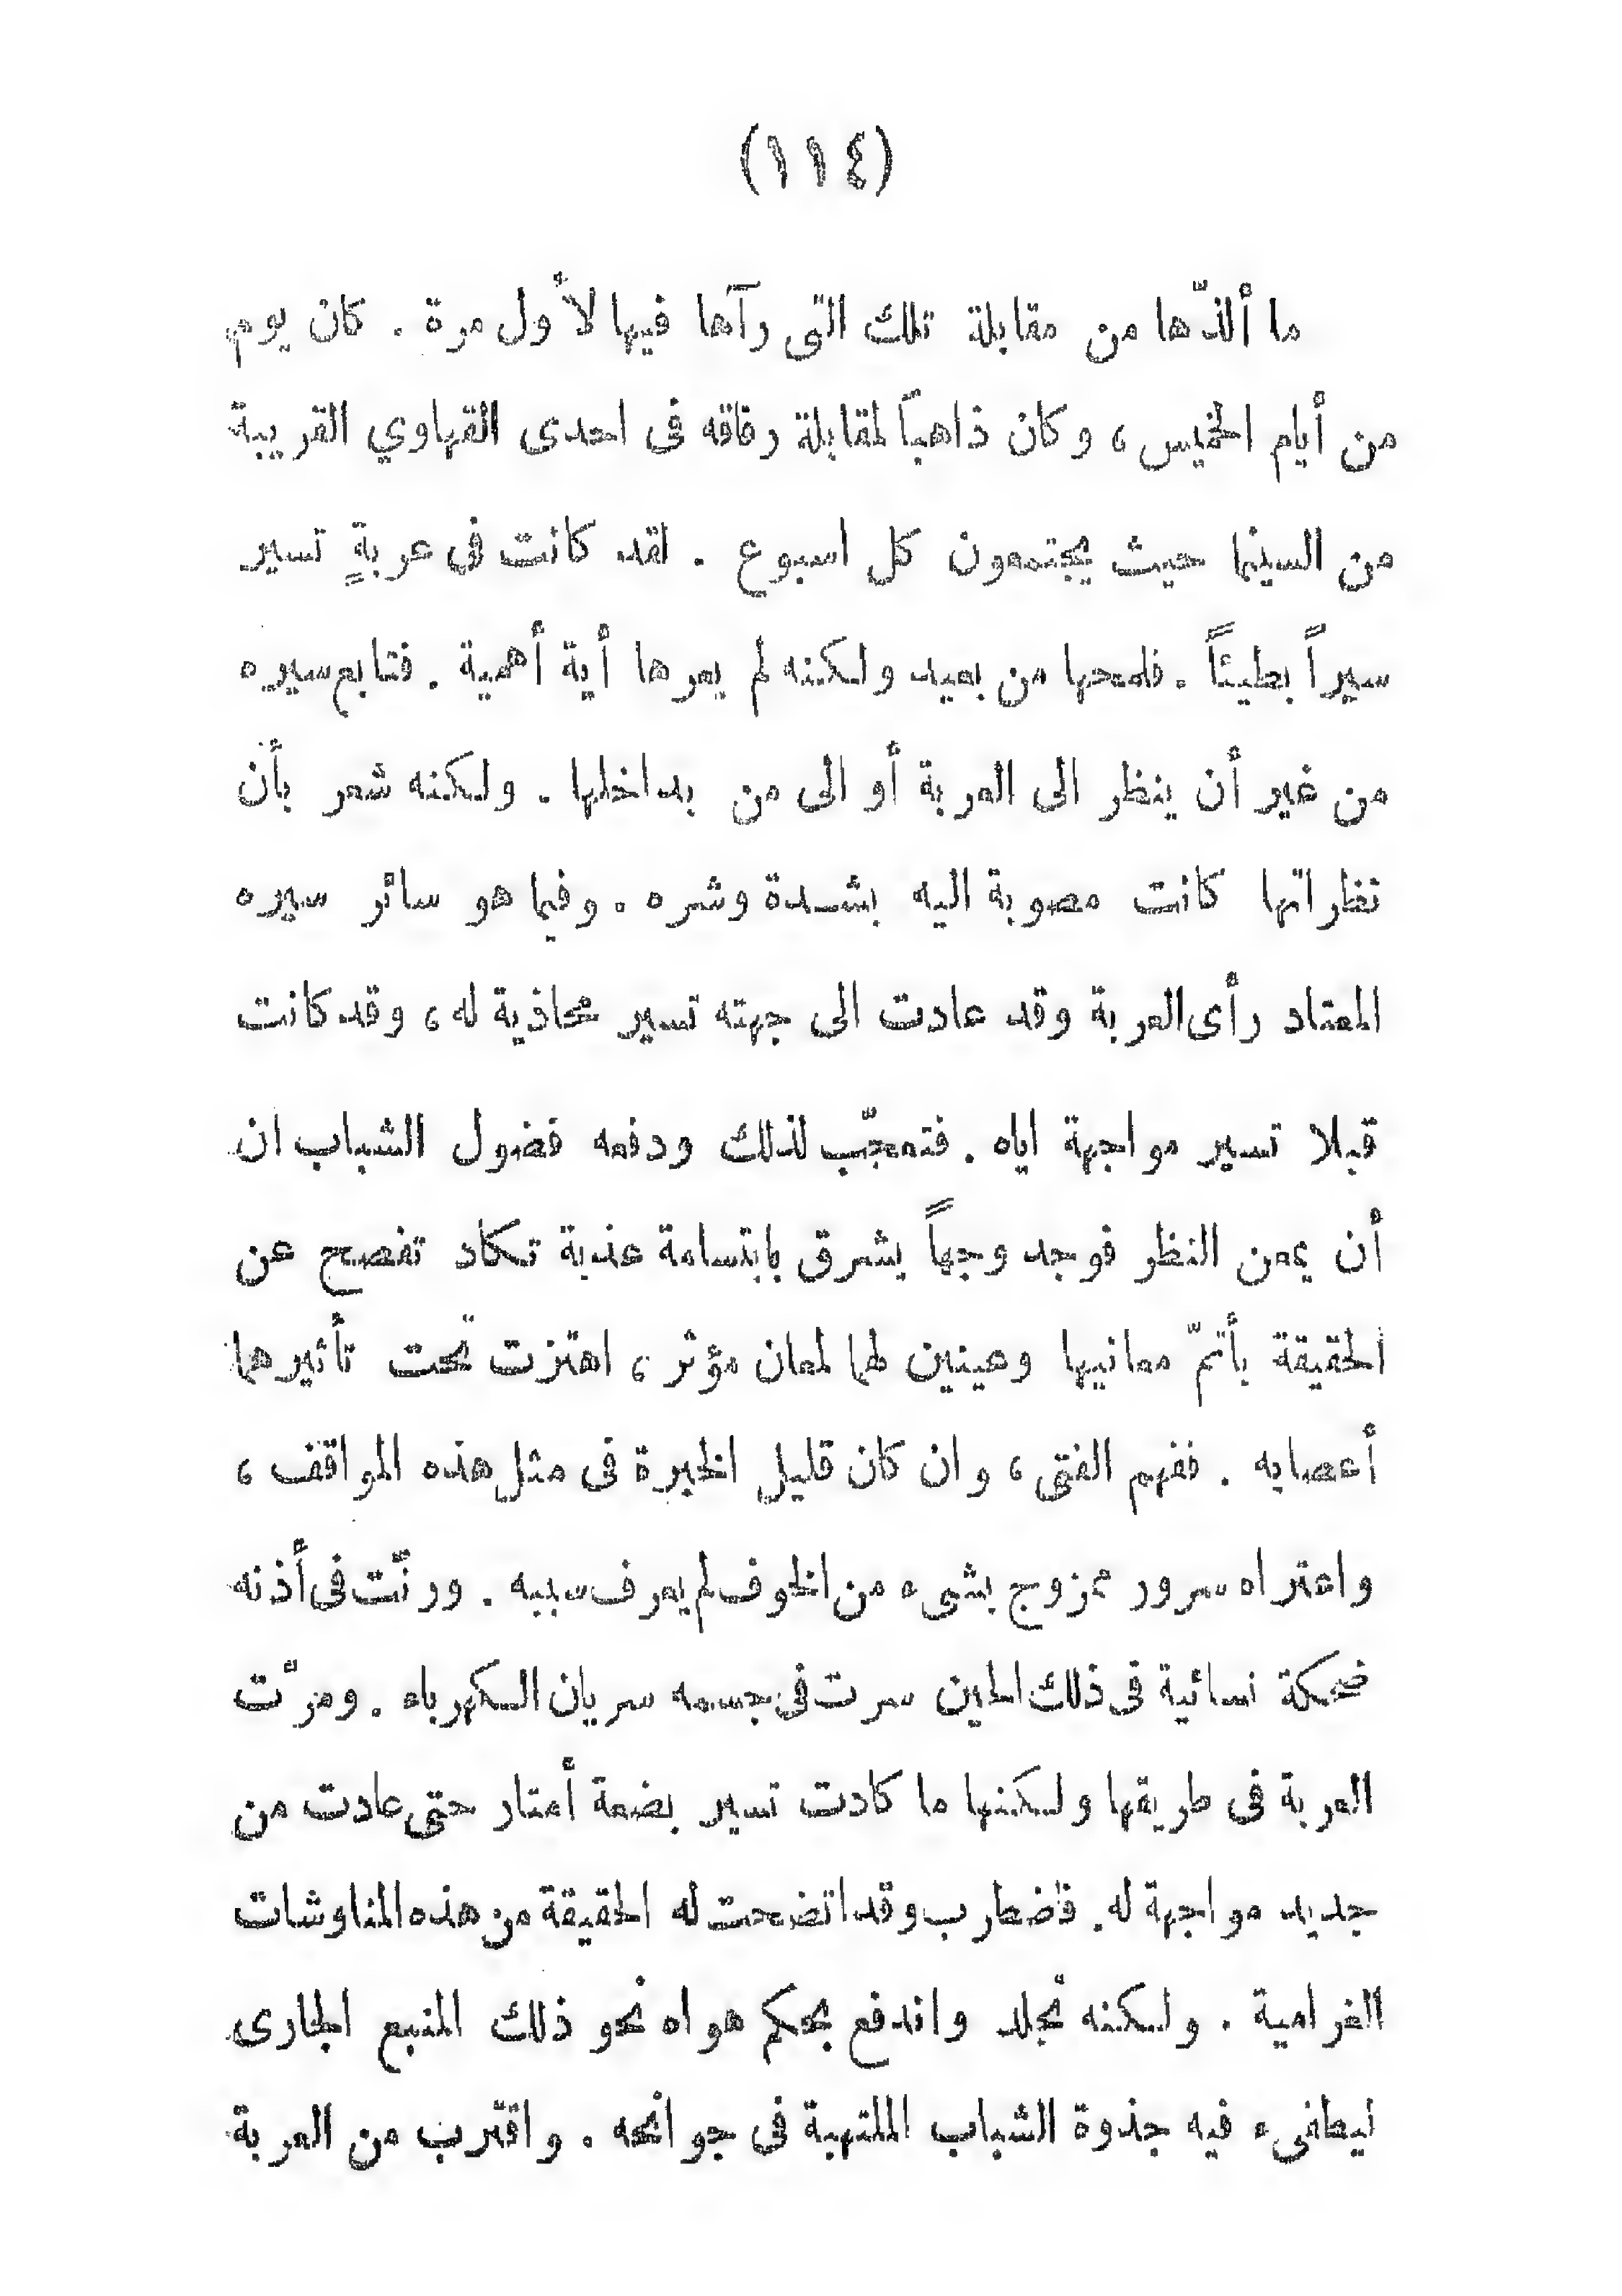 (١١٤)
ما ألذّها من مقابلة تلك التى رآها فيها لأول مرة . كان يوم
من أيام الخميس، وكان ذاهباً لمقابلة رفاقه فى احدى القهاوي القريبة
من السينما حيث يجتمعون كل اسبوع . لقد كانت فى عربةٍ تسير
سيراً بطيئاً . فلمحها من بعيد ولكنه لم يعرها أية أهمية . فتابع سيره
من غير أن ينظر الى العربة أو الى من بداخلها . ولكنه شعر بأن
نظراتها كانت مصوبة اليه بشدة وشره . وفيما هو سائر سيره
المعتاد رأى العربة وقد عادت الى جهته تسير محاذية له، وقد كانت
قبلا تسير مواجهة اياه . فتعجّب لذلك ودفعه فضول الشباب ان
أن يمعن النظر فوجد وجهاً يشرق بابتسامة عذبة تكاد تفصح عن
الحقيقة بأتمّ معانيها وعينين لهما لمعان مؤثر، اهتزت تحت تأثيرهما
أعصابه . ففهم الفتى، وان كان قليل الخبرة فى مثل هذه المواقف،
واعتراه سرور ممزوج بشىء من الخوف لم يعرف سببه . ورنّت فى أذنه
ضحكة نسائية فى ذلك الحين سرت فى جسمه سريان الكهرباء . ومرّت
العربة فى طريقها ولكنها ما كادت تسير بضعة أمتار حتى عادت من
جديد مواجهة له. فاضطرب وقد اتضحت له الحقيقة من هذه المناوشات
الغرامية . ولكنه تجلد واندفع بحكم هواه نحو ذلك المنبع الجارى
ليطفىء فيه جذوة الشباب الملتهبة فى جوانحه . واقترب من العربة